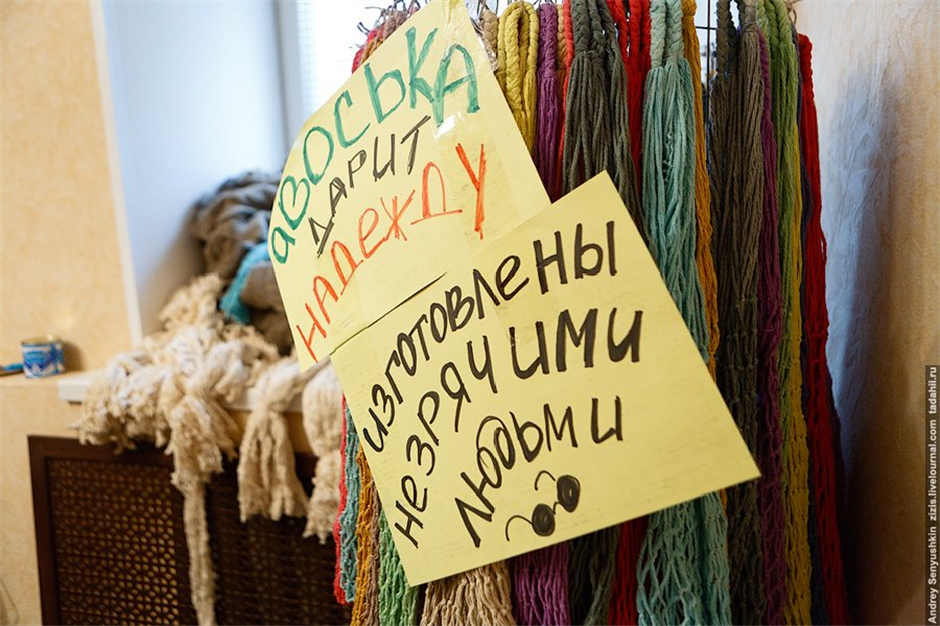 авоська
дарит
надежду
изготовлены
незрячими
людьми
Andrey Senyushkin zizis.livejournal.com tadahii.ru